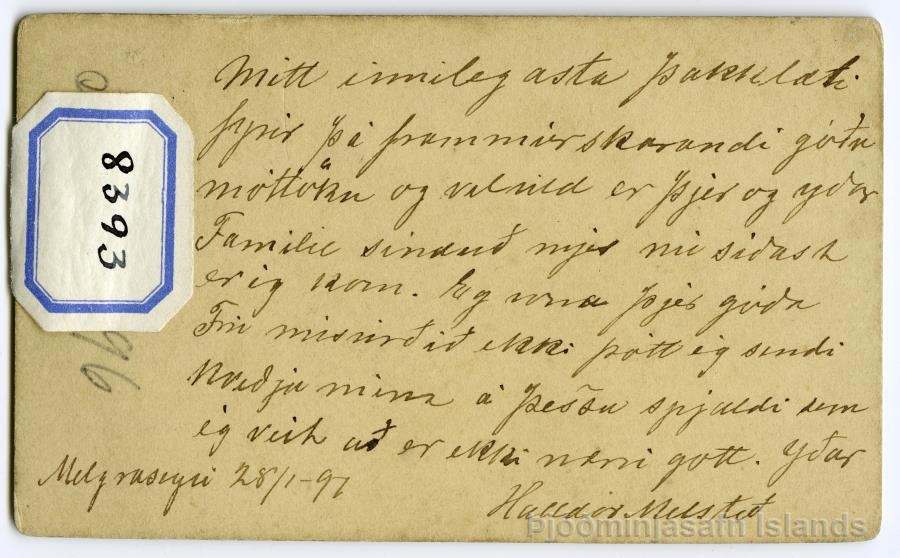 Mitt innilegasta þakklæti
fyrir þá frammúrskarandi góða
móttöku og velvild er þjer og yðar
Familie sínduð mjer nú síðast
er ég kom. Eg vona þjer góða
Frú misvirðið ekki þótt ég sendi
kveðju mína á þessu spjaldi sem
ég veit að er ekki nærri gott. Yðar
Melgraseyri 28/1-97
Halldór Melsteð
83393
96
Þjóðminjasafn Íslands